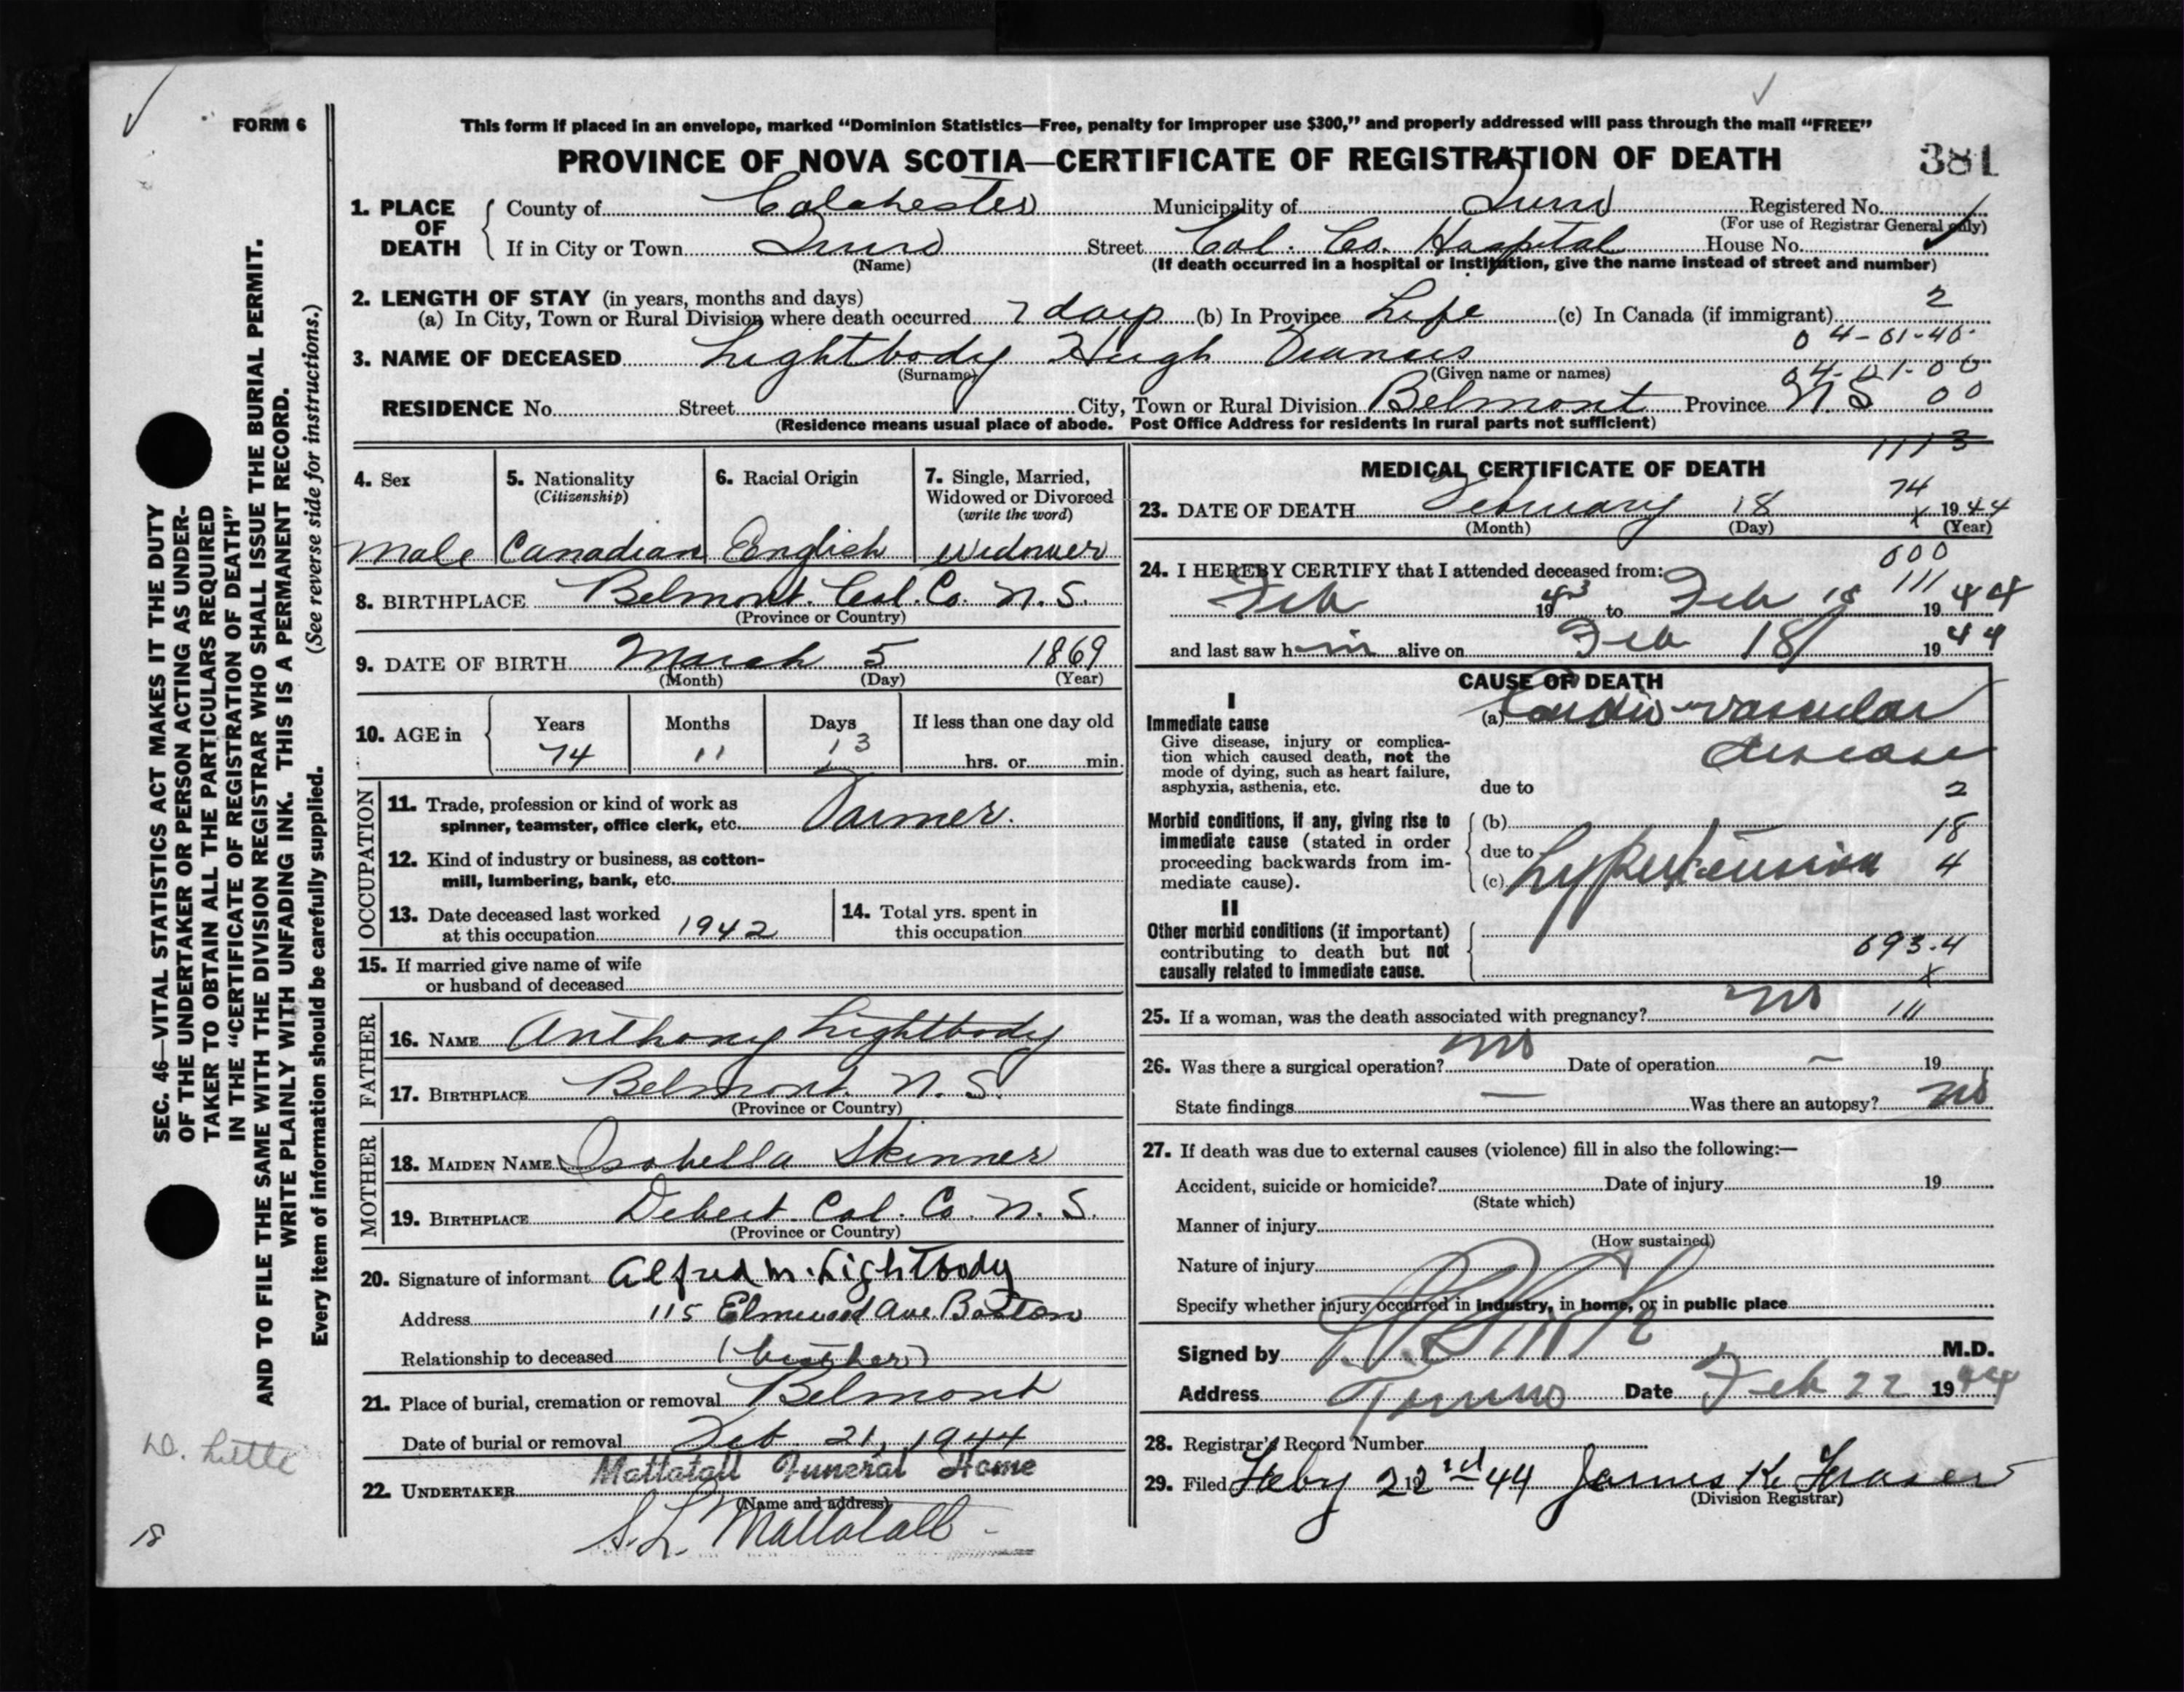 FORM 6
This form if placed in an envelope, marked “Dominion Statistics—Free, penalty for improper use $300,” and properly addressed will pass through the mail “FREE”
PROVINCE OF NOVA SCOTIA—CERTIFICATE OF REGISTRATION OF DEATH 381
1. PLACE OF DEATH
County of Colchester Municipality of Truro Registered No.
(For use of Registrar General only)
If in City or Town Truro Street Col. Co. Hospital House No.
(Name) (If death occurred in a hospital or institution, give the name instead of street and number)
2. LENGTH OF STAY (in years, months and days)
(a) In City, Town or Rural Division where death occurred 7 days (b) In Province Life (c) In Canada (if immigrant) 2
04-01-40
3. NAME OF DECEASED Lightbody Hugh Francis
(Surname) (Given name or names) 04-01-00
RESIDENCE No. Street City, Town or Rural Division Belmont Province N.S 00
(Residence means usual place of abode. Post Office Address for residents in rural parts not sufficient)
1113
4. Sex
Male
5. Nationality
(Citizenship)
Canadian
6. Racial Origin
English
7. Single, Married,
Widowed or Divorced
(write the word)
Widower
8. BIRTHPLACE Belmont. Col. Co. N.S.
(Province or Country)
9. DATE OF BIRTH March 5 1869
(Month) (Day) (Year)
10. AGE in
Years Months Days If less than one day old
74 11 13 hrs. or min.
OCCUPATION
11. Trade, profession or kind of work as
spinner, teamster, office clerk, etc. Farmer.
12. Kind of industry or business, as cotton-
mill, lumbering, bank, etc.
13. Date deceased last worked
at this occupation 1942
14. Total yrs. spent in
this occupation
15. If married give name of wife
or husband of deceased
FATHER
16. NAME Anthony Lightbody
17. BIRTHPLACE Belmont. N.S.
(Province or Country)
MOTHER
18. MAIDEN NAME Isabella Skinner
19. BIRTHPLACE Debert. Col. Co. N.S.
(Province or Country)
20. Signature of informant Alfred M. Lightbody
Address 115 Elmwood Ave. Boston
Relationship to deceased (brother)
21. Place of burial, cremation or removal Belmont
Date of burial or removal Feb 21, 1944
22. UNDERTAKER Mattatall Funeral Home
(Name and address)
S.L. Mattatall
MEDICAL CERTIFICATE OF DEATH
74
23. DATE OF DEATH February 18 1944
(Month) (Day) (Year)
600
24. I HEREBY CERTIFY that I attended deceased from:
111
Feb 1943 to Feb 18 1944
and last saw him alive on Feb 18 1944
CAUSE OF DEATH
I
Immediate cause
Give disease, injury or complica-
tion which caused death, not the
mode of dying, such as heart failure,
asphyxia, asthenia, etc.
(a) Cardio-vascular
disease
due to 2
Morbid conditions, if any, giving rise to
immediate cause (stated in order
proceeding backwards from im-
mediate cause).
(b) 18
due to
(c) hypertension 4
II
Other morbid conditions (if important)
contributing to death but not
causally related to immediate cause.
693.4
25. If a woman, was the death associated with pregnancy? no 111
26. Was there a surgical operation? no Date of operation — 19
State findings — Was there an autopsy? no
27. If death was due to external causes (violence) fill in also the following:—
Accident, suicide or homicide? Date of injury 19
(State which)
Manner of injury
(How sustained)
Nature of injury
Specify whether injury occurred in industry, in home, or in public place
Signed by M.D.
Address Truro Date Feb 22 1944
28. Registrar's Record Number
29. Filed Feby 22nd 1944 James K. Fraser
(Division Registrar)
SEC. 46—VITAL STATISTICS ACT MAKES IT THE DUTY
OF THE UNDERTAKER OR PERSON ACTING AS UNDER-
TAKER TO OBTAIN ALL THE PARTICULARS REQUIRED
IN THE “CERTIFICATE OF REGISTRATION OF DEATH”
AND TO FILE THE SAME WITH THE DIVISION REGISTRAR WHO SHALL ISSUE THE BURIAL PERMIT.
WRITE PLAINLY WITH UNFADING INK. THIS IS A PERMANENT RECORD.
Every item of information should be carefully supplied. (See reverse side for instructions.)
Little
18